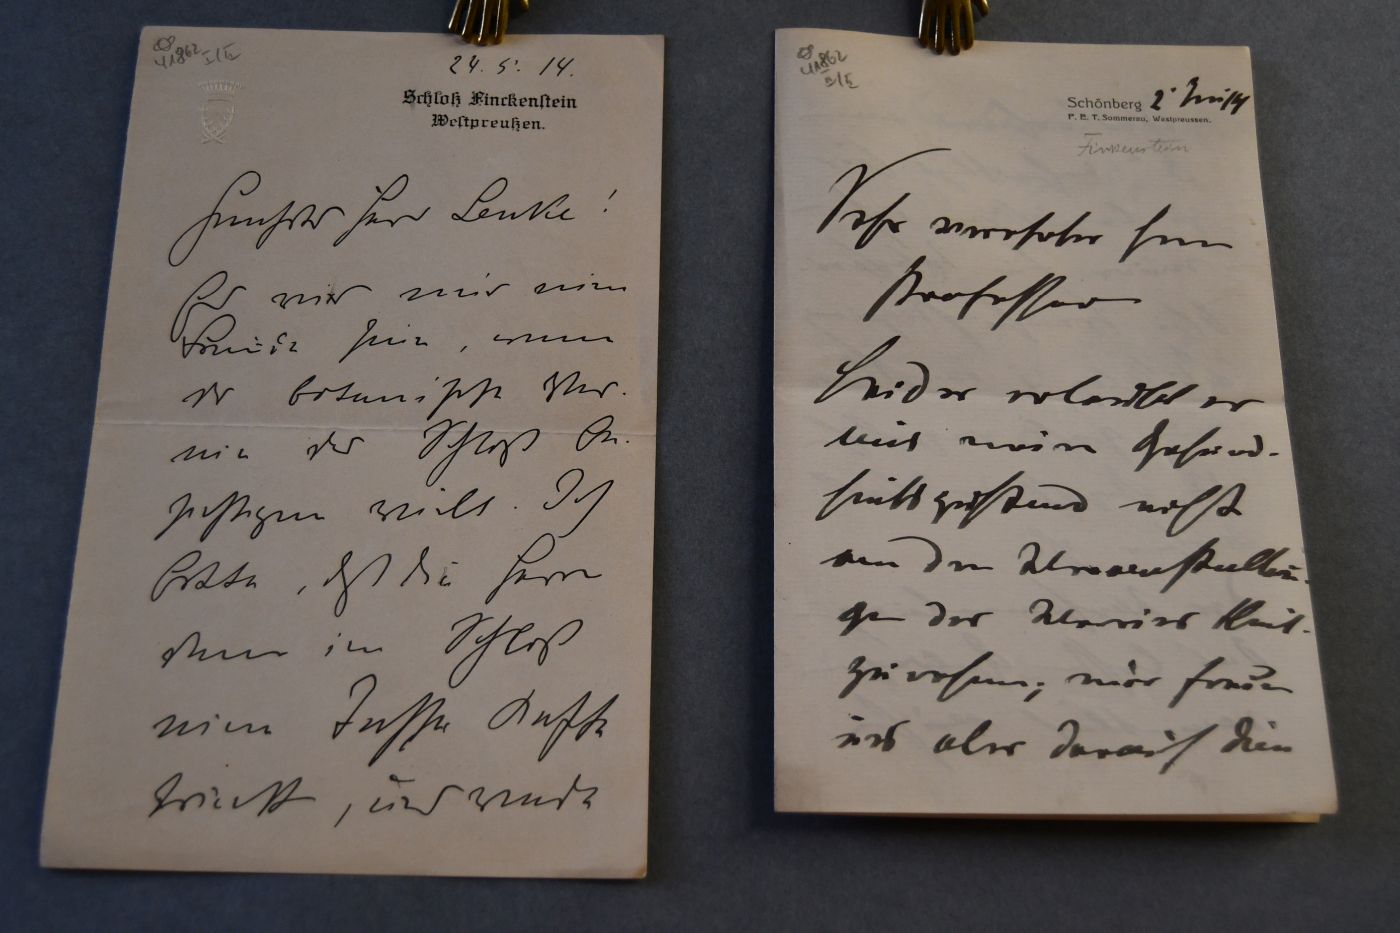 41862
24. 5. 14.
Schloß Finckenstein
Westpreußen.
Herr Lenke!
Es wär mir eine
Freude sein, wenn
der botanische Ver-
ein das Schloß be-
sichtigen will. Ich
bitte, daß die Herrn
dann im Schloß
eine Tasse Kaffee
trinkt, und werde
41862
Schönberg 2. Juni 14
P. E. T. Sommerau, Westpreussen.
Finkenstein
Sehr verehrter Herr
Professor
Leider erlaubt es
mir mein Gesund-
heitszustand nicht
an den Veranstaltun-
gen des Vereins theil-
zunehmen; wir freuen
uns aber darauf die